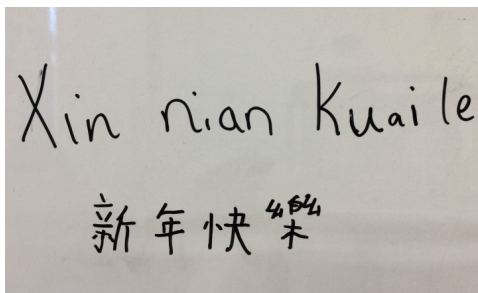 Xin nian Kuai le
新年快樂